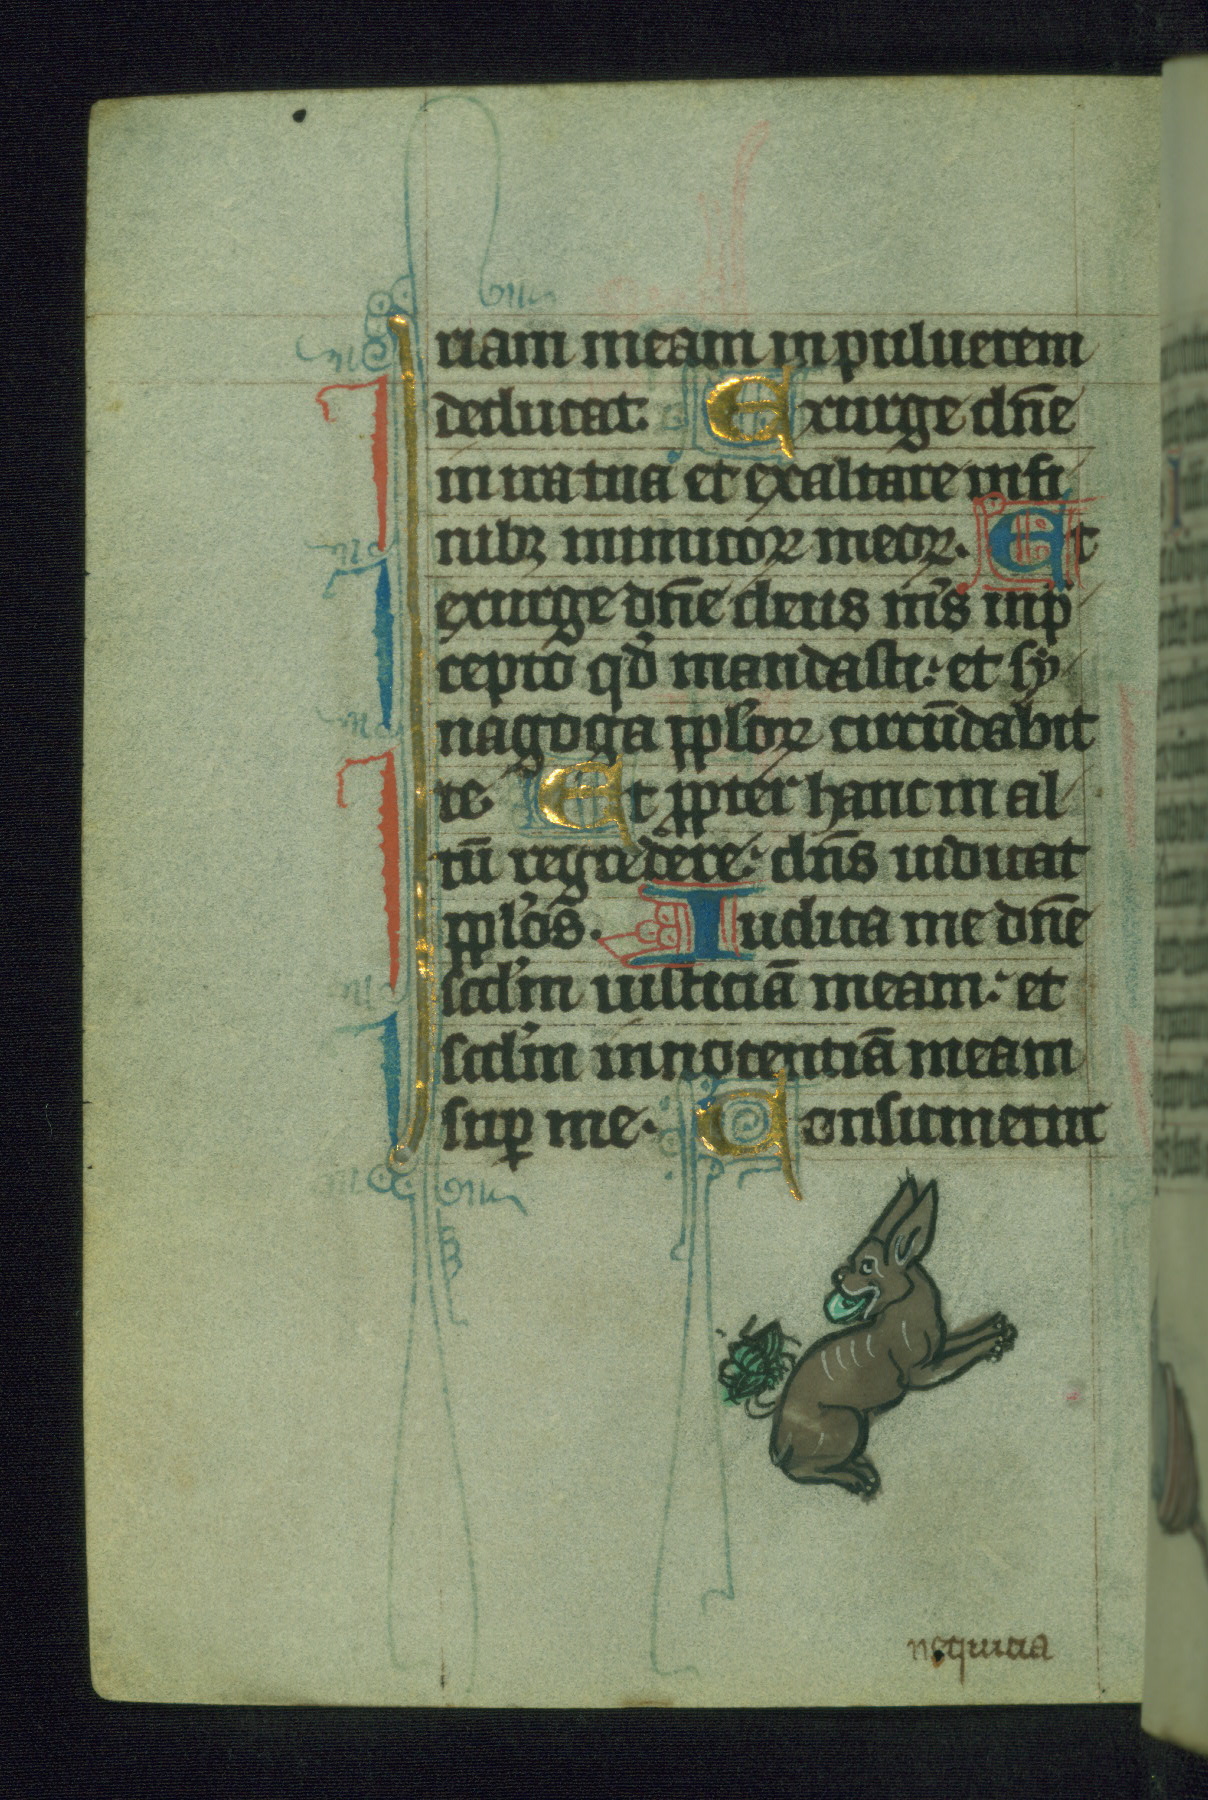 riam meam in puluerem
deducat. Exurge dn̄e
in ira tua et exaltare in fi
nibꝫ inimicoꝝ meoꝝ. Et
exurge dn̄e deus m̄s in p̄
cepto qd̓ mandasti: et sẏ
nagoga pp̄loꝝ circūdabit
te Et pp̄ter hanc in al
tū regredere: dn̄s iudicat
pp̄los. Iudica me dn̄e
scd̓m iusticiā meam: et
scd̓m innocentiā meam
suꝑ me. Consumetur
nequicia